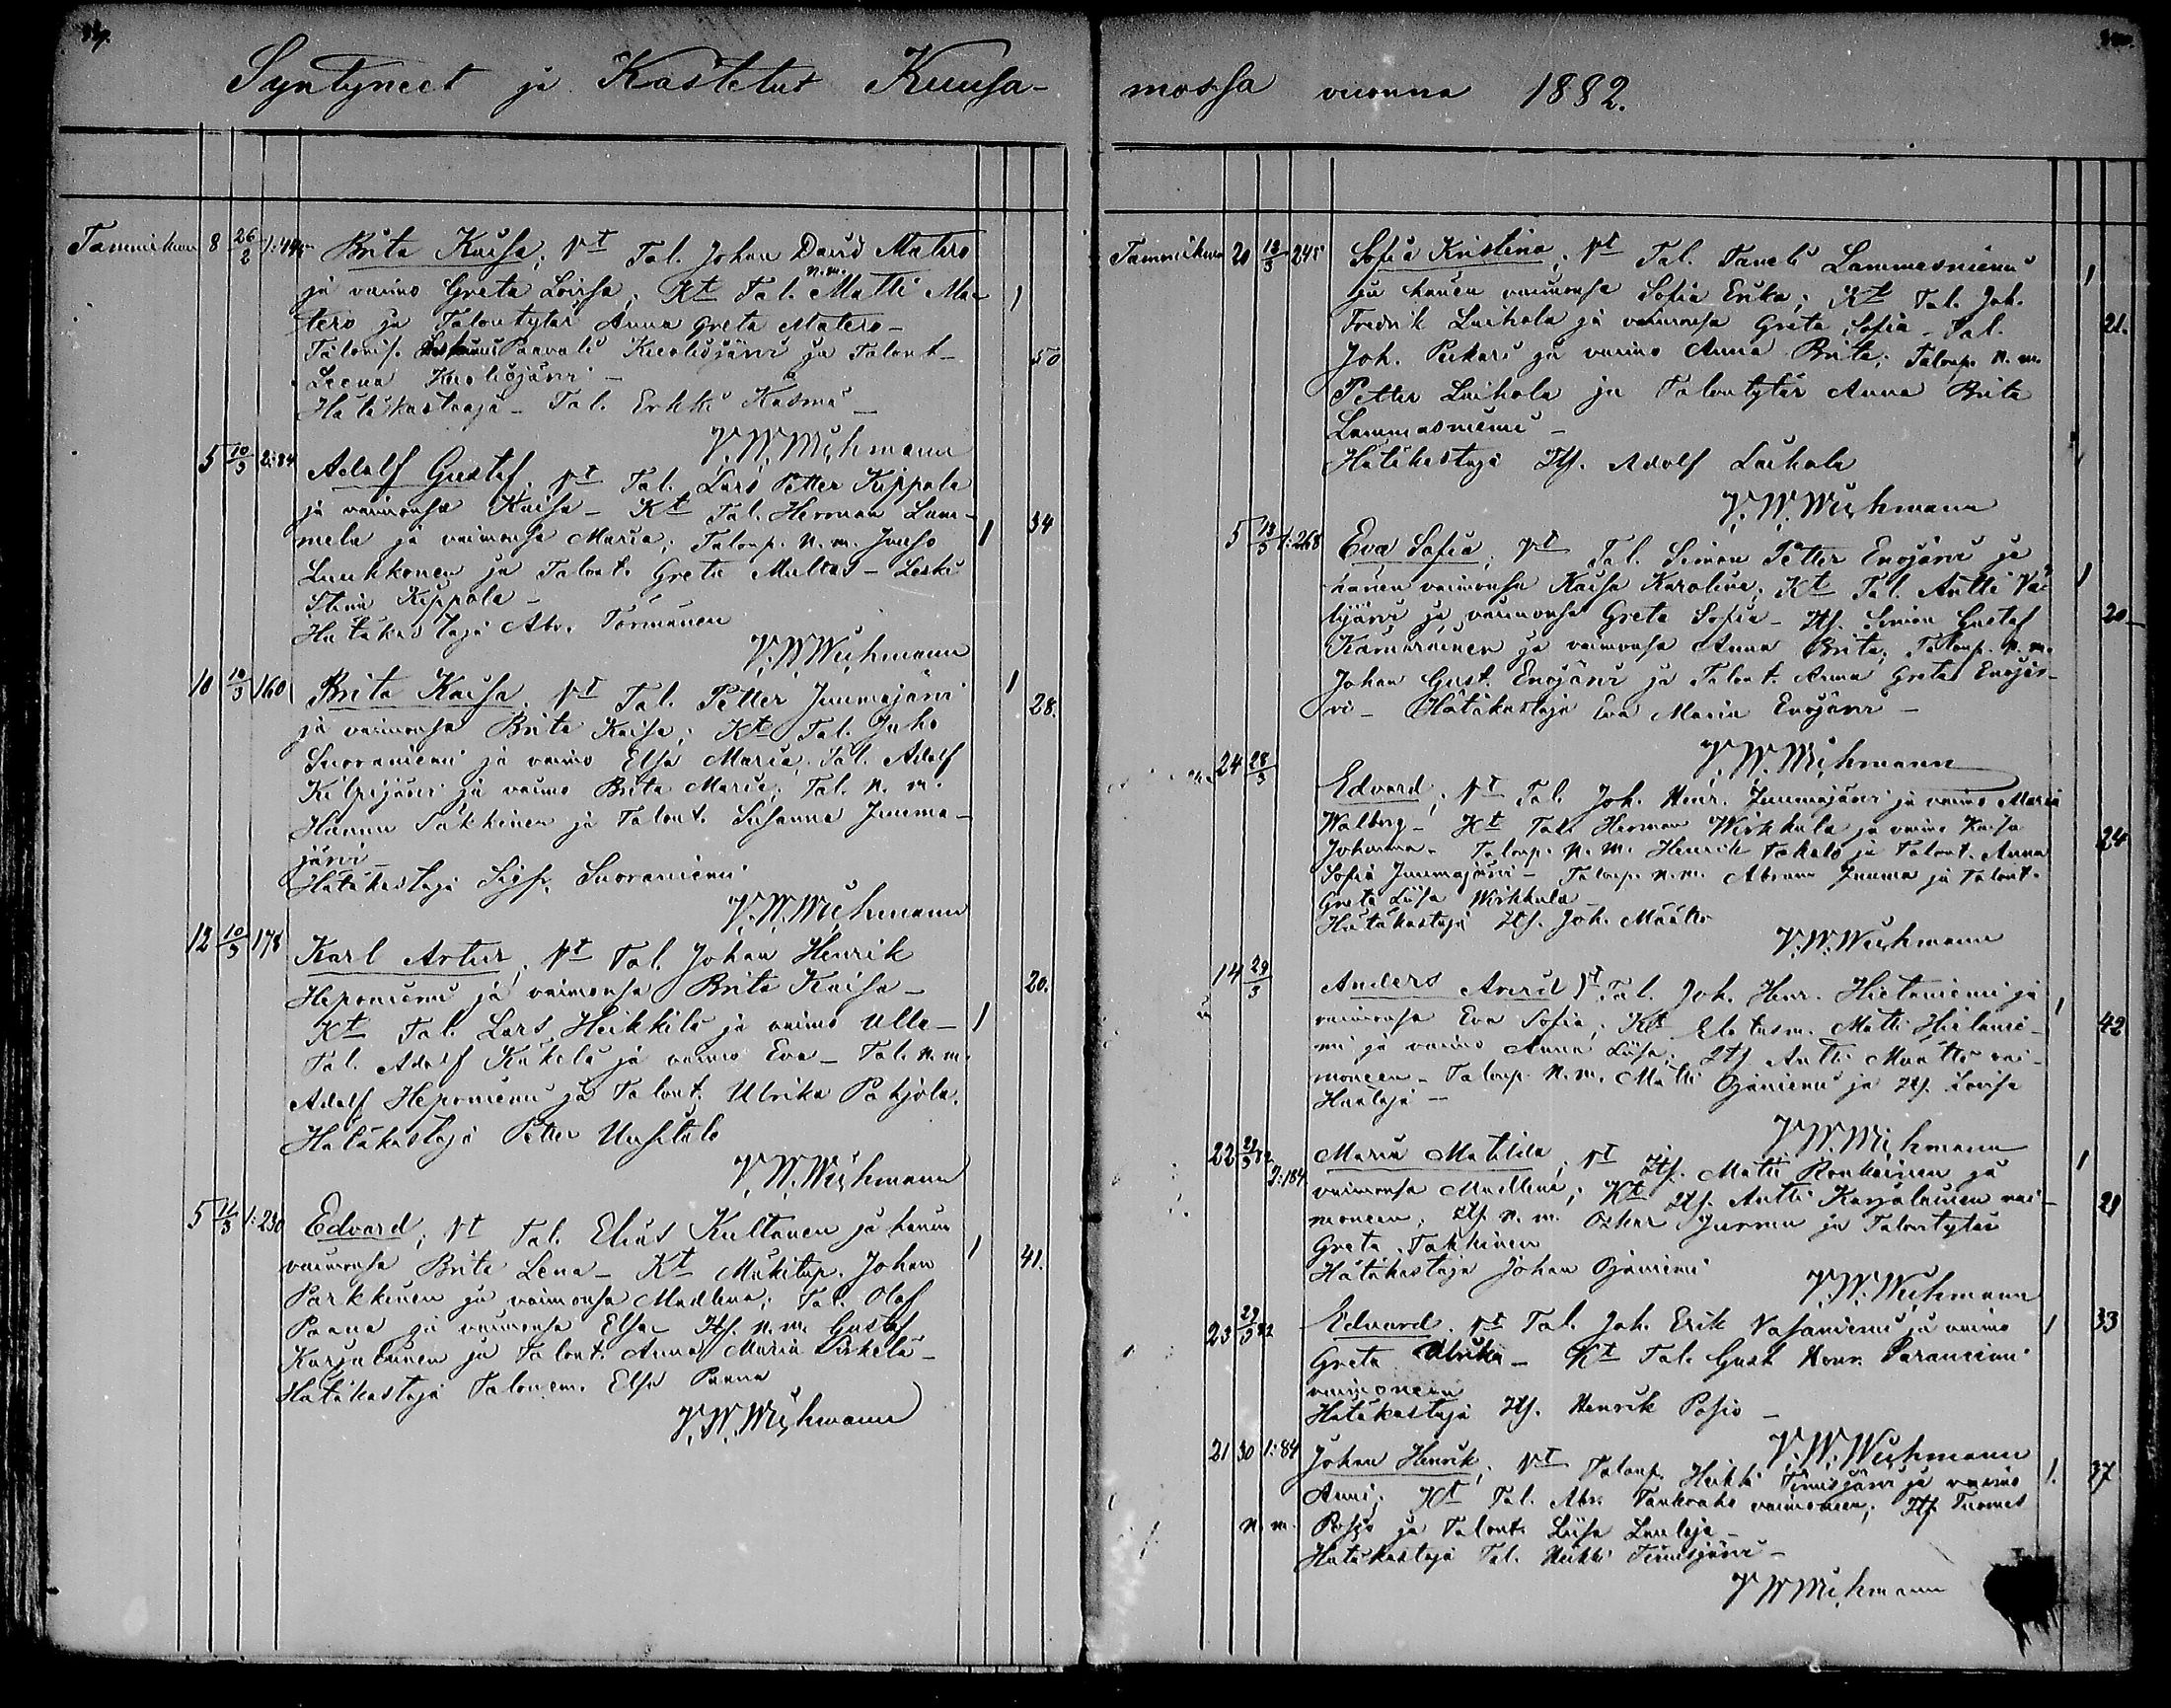 Syntyneet ja Kastetut Kuusa-
Tammikuu 8 26/2 Brita Kaisa; Vt Tal. Johan David Matero
ja vaimo Greta Lovisa; Kt Tal. n.m. Matti Ma- 1
tero ja Talontytär Anna Greta Matero-
Paavali Kuolisjärvi ja Talont- 50
Leena Kuolisjärvi -
Hätäkastaja - Tal. Erkki Kasma -
V. W. Wichmann
5 10/3 2:84 Adolf Gustaf. Vt Tal. Lars Petter Kippola
ja vaimonsa Kaisa - Kt Tal. Herman Lam-
mela ja vaimonsa Maria; Talonp. n.m. Juho 1 34
Luukkonen ja Talont. Greta Multas - Leski
Stina Kippola -
Hätäkastaja Abr. Törmänen
V. W. Wichmann
10 10/3 160 Brita Kaisa. Vt Tal. Petter Jummajärvi 1
ja vaimonsa Brita Kaisa; Kt Tal. Juho 28.
Suoraniemi ja vaimo Elsa Maria. Tal. Adolf
Kilpijärvi ja vaimo Brita Maria; Tal. n. m.
Hannu Säkkinen ja Talont. Susanna Jumma-
järvi -
Hätäkastaja Suoraniemi
V. W. Wichmann
12 10/3 178 Karl Artur, Vt Tal. Johan Henrik
Heponiemi ja vaimonsa Brita Kaisa - 20.
Kt Tal. Lars Heikkilä ja vaimo Ulla - 1
Tal. Adolf Käkelä ja vaimo Eva - Tal. n.m.
Adolf Heponiemi ja Talont. Ulrika Pohjola.
Hätäkastaja Petter Uusitalo
V. W. Wichmann
5 11/3 1:230 Edvard; Vt Tal. Elias Kultanen ja hänen
vaimonsa Brita Lena - Kt Mäkitup. Johan 1 41.
Parkkinen ja vaimonsa Madlena; Tal. Olof
Paana ja vaimonsa Elsa Itf. n.m. Gustaf
Karjalainen ja Talont. Anna Maria Pirkelä -
Hätäkastaja Talonem. Elsa Paana
V. W. Wichmann
mossa vuonna 1882.
Tammikuu 20 13/3 245 Sofia Kristina, Vt Tal. Taneli Lammasniemi 1
ja hänen vaimonsa Sofia Erika; Kt Tal. Joh.
Fredrik Laihola ja vaimonsa Greta Sofia - Tal. 21.
Joh. Pukari ja vaimo Anna Brita; Talonp. n.m.
Petter Laihola ja Talontytär Anna Brita
Lammasniemi -
Hätäkastaja Itf. Adolf Laihola
V. W. Wichmann
5 13/3 1:268 Eva Sofia; Vt Tal. Simon Petter Enojärvi ja
hänen vaimonsa Kaisa Karolina; Kt Tal. Antti Va- 1
lijärvi ja vaimonsa Greta Sofia - Itf. Simon Gustaf 20 -
Kämäräinen ja vaimonsa Anna Brita; Talonp. n.m.
Johan Gust. Enojärvi ja Talont. Anna Greta Enojär-
vi - Hätäkastaja Eva Maria Enojärvi -
V. W. Wichmann
24 28/3 Edvard; Vt Tal. Joh. Henr. Jummajärvi ja vaimo Maria
Walborg - Kt Tal. Herman Wirkkula ja vaimo Kaisa
Johanna - Talonp. n.m. Henrik Takalo ja Talont. Anna 24
Sofia Jummajärvi - Talonp. n.m. Abram Jumma ja Talont.
Greta Liisa Wirkkula -
Hätäkastaja Itf. Joh. Määttä
V. W. Wichmann
14 29/3 Anders Arvid Vt Tal. Joh. Henr. Hietaniemi ja 1
vaimonsa Eva Sofia; Kt Elatusm. Matti Hietanie- 42
mi ja vaimo Anna Liisa; Itf Antti Määttä vai-
moneen - Talonp. n.m. Matti Ojaniemi ja Itf. Lovisa
V. W. Wichmann
22 29/3 82 2:184 Maria Matilda, Vt Itf. Matti Ronkainen ja 1
vaimonsa Madlena; Kt Itf. Antti Karjalainen vai-
moneen; Itf n.m. Oskar Jurmu ja Talontytär 29
Greta Takkinen
Hätäkastaja Johan Ojaniemi
V. W. Wichmann
23 29/3 82 Edvard. Vt Tal. Joh. Erik Vasaniemi ja vaimo 1 33
Greta Ulrika - Kt Tal. Gust Henr. Paraniemi
vaimoneen
Hätäkastaja Itf. Henrik Posio -
V. W. Wichmann
21 30 1:84 Johan Henrik, Vt Talonp. Heikki Tinnisjärvi ja vaimo 1. 37
Anni; Kt Tal. Abr. Vankvaho vaimoneen; Itf Tuomas
n. m. Posio ja Talont. Liisa Laulaja -
Hätäkastaja Tal. Heikki Tinnisjärvi -
V W Wichmann